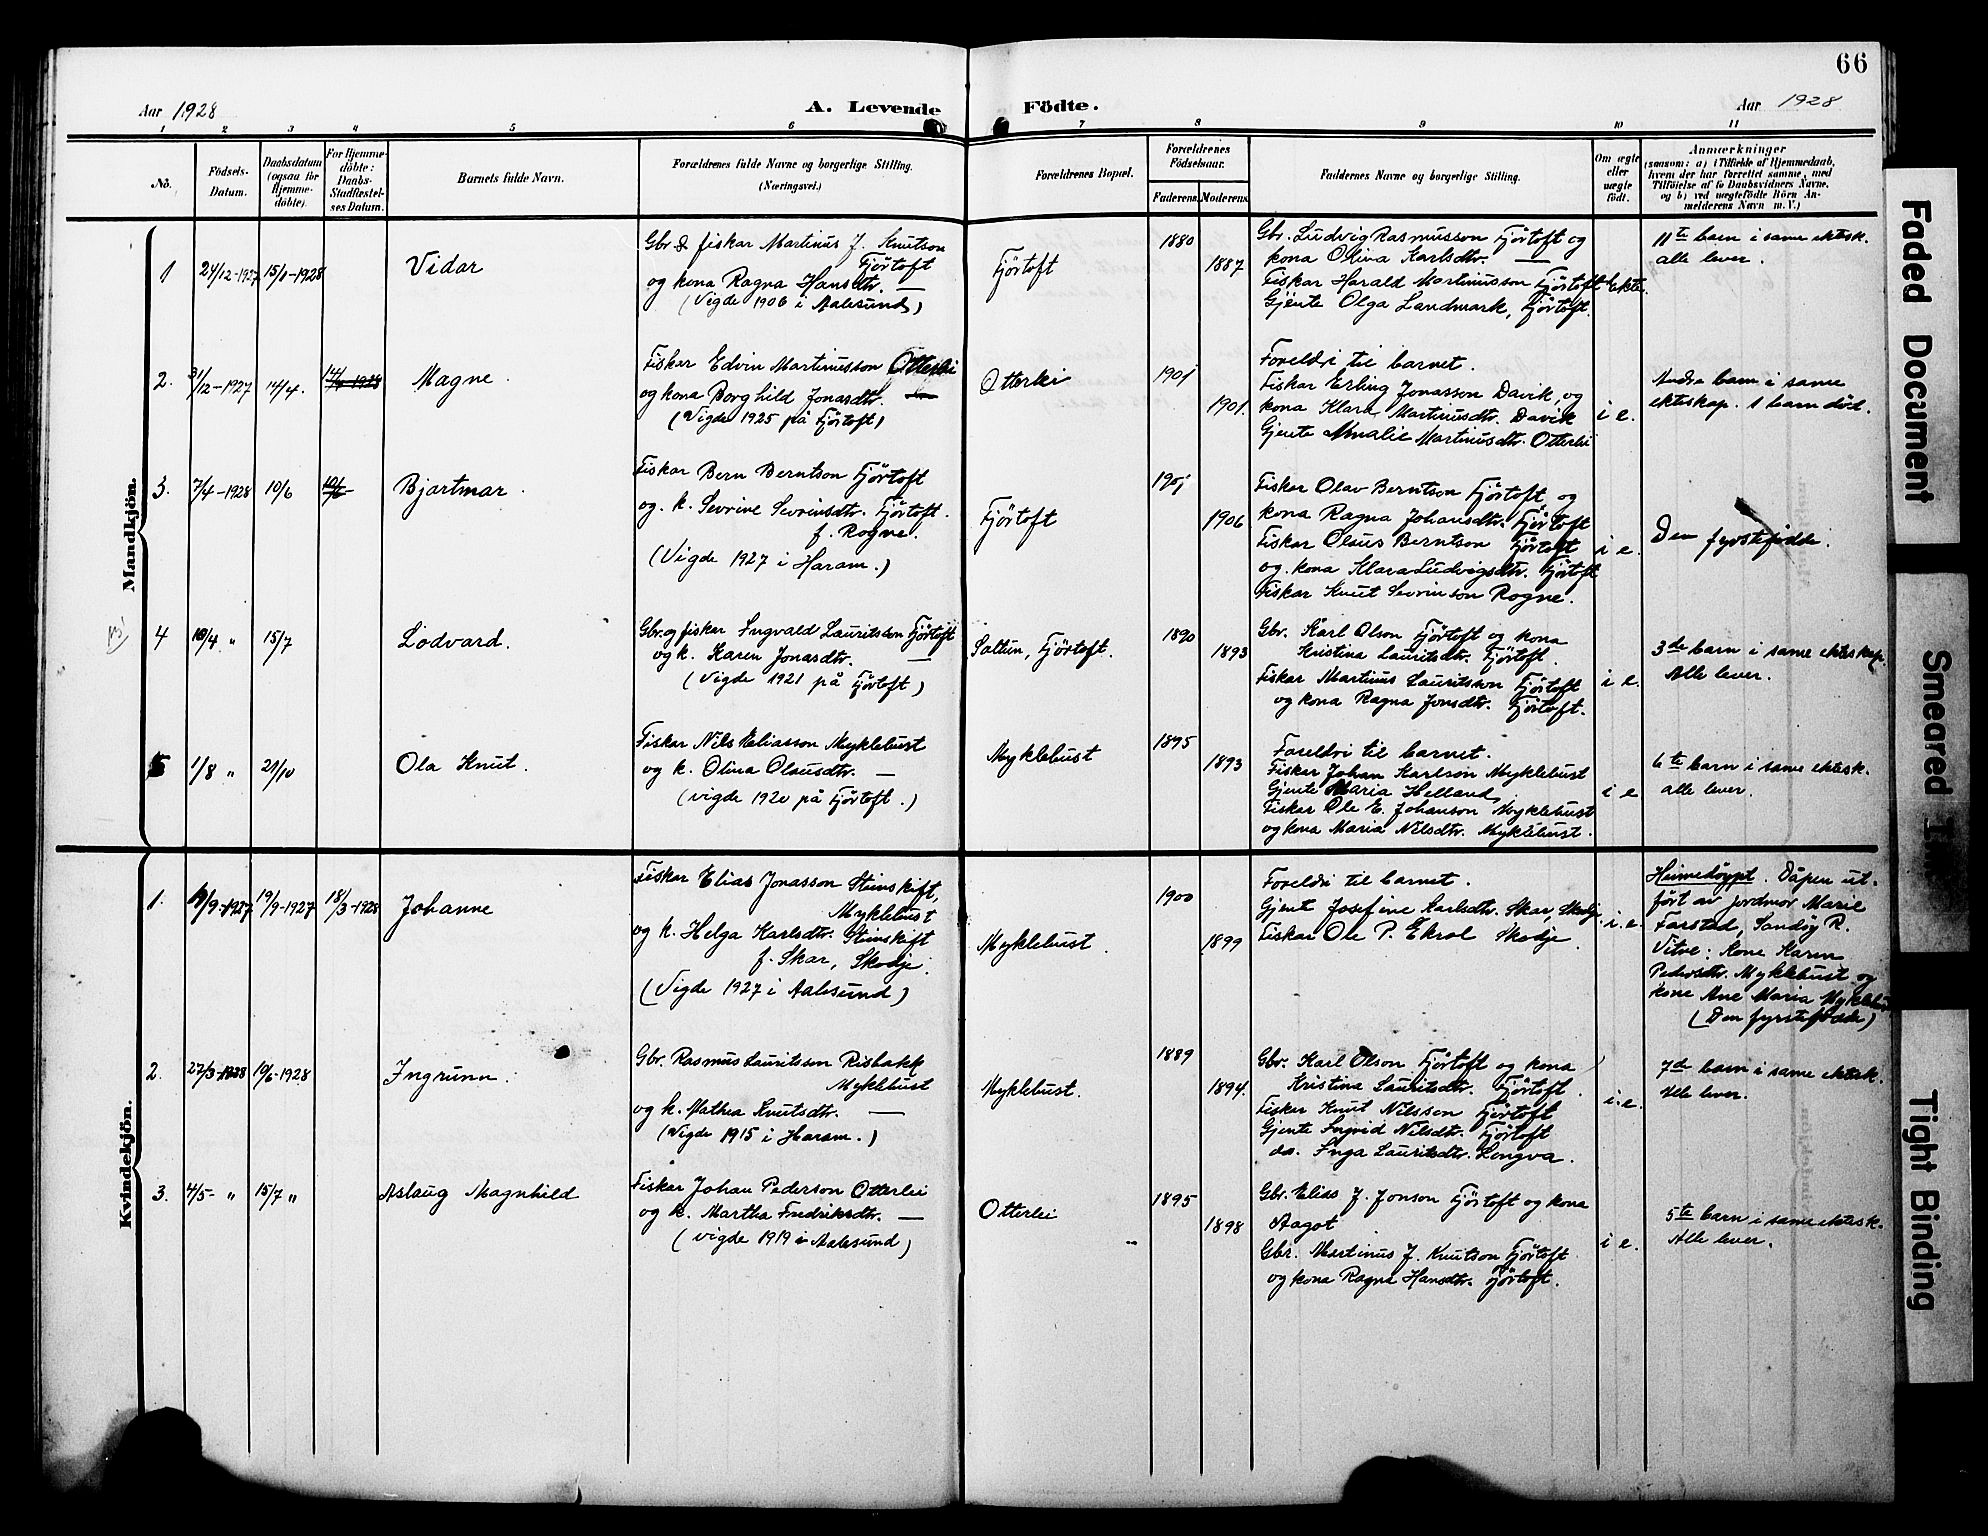 66
Aar 1928
A. Levende Födte.
Aar 1928
1 2 3 4 5 6 7 8 9 10 11
No.
Födsels-
Datum.
Daabsdatum
(ogsaa for
Hjemme-
döbte).
For Hjemme-
döbte:
Daabs-
Stadfæstel-
ses Datum.
Barnets fulde Navn.
Forældrenes fulde Navne og borgerlige Stilling.
(Næringsvei.)
Forældrenes Bopæl.
Forældrenes
Födselsaar.
Faderens. Moderens.
Faddernes Navne og borgerlige Stilling.
Om ægte
eller
uægte
født.
Anmærkninger
(saasom: a) i Tilfælde af Hjemmedaab,
hvem der har forrettet samme, med
Tilföielse af to Daabsvidners Navne,
og b) ved uægtefödte Börn An-
melderens Navn m. V.)
Mandkjön.
1
24/12-1927
15/1-1928
Vidar
Gbr & fiskar Martinus J. Knutson
Fjörtoft
og kona Ragna Hansdtr. —
(Vigde 1906 i Aalesund)
Fjörtoft
1880
1887
Gbr. Ludvig Rasmusson Fjörtoft og
kona Oliva Karlsdtr. —
Fiskar Harald Martinusson Fjörtoft
Gjente Olga Landmark, Fjörtoft.
ekte.
11te barn i same ektesk.
alle lever.
2.
31/12-1927
14/4.
14/4-1928
Magne.
Fiskar Edvin Martinusson Otterlei
og kona Borghild Jonasdtr. —
(Vigde 1925 på Fjörtoft)
Otterlei
1901
1901.
Foreldri til barnet.
Fiskar Erling Jonasson Davik, og
kona Klara Martinusdtr. Davik
Gjente Amalie Martinusdtr. Otterlei
i e.
Andre barn i same
ekteskap. 1 barn död.
3.
7/4-1928
10/6
10/6-
Bjartmar.
Fiskar Bern Berntson Fjörtoft
og. k. Sevrine Sevrinsdtr. Fjörtoft.
f. Rogne.
(Vigde 1927 i Haram.)
Fjörtoft
1901
1906
Fiskar Olav Berntson Fjörtoft, og
kona Ragna Johansdtr. Fjörtoft
Fiskar Olaus Berntson Fjörtoft
og. kona Klara Ludvigsdtr. Fjörtoft
Fiskar Knut Sevrinson Rogne.
i e.
Den fyrstefödde.
4
10/4 "
15/7
Lodvard.
Gbr. og fiskar Ingvald Lauritsson Fjörtoft
og k. Karen Jonasdtr. —
(Vigde 1921 på Fjörtoft)
Saltun, Fjörtoft.
1890
1893
Gbr. Karl Olson Fjörtoft og kona
Kristina Lauritsdtr. Fjörtoft.
Fiskar Martinus Lauritsson Fjörtoft
og kona Ragna Jonsdtr. Fjörtoft.
i e.
3de barn i same ekteskap.
Alle lever.
5
1/8 "
21/10
Ola Knut.
Fiskar Nils Eliasson Myklebust
og k. Olina Olausdtr. —
(vigde 1920 på Fjörtoft.)
Myklebust
1895
1893
Foreldri til barnet.
Fiskar Johan Karlson Myklebust
Gjente Maria Helland,
Fiskar Ole E. Johanson Myklebust
og kona Maria Nilsdtr. Myklebust.
i e
6te barn i same ektesk.
alle lever.
Kvindekjön.
1.
19/9-1927
18/3-1928
Johanne
Fiskar Elias Jonasson Steinskift,
Myklebust
og k. Helga Karlsdtr. Steinskift
f. Skar, Skodje.
(Vigde 1927 i Aalesund)
Myklebust.
1900
1899
Foreldri til barnet.
Gjente Josefine Karlsdtr. Skar, Skodje
Fiskar Ole P. Ekrol Skodje.
i. e.
Heimedöypt. Dåpen ut-
fört av jordmor Marie
Farstad, Sandöy R.
Vitne: Kone Karen
Pedersdtr. Myklebust og
kone Ane Maria Myklebust
(Den fyrstefödde)
2.
27/3-1928
10/6-1928
Ingrunn.
Gbr. Rasmus Lauritsson Risbakk
Myklebust
og k. Mathea Knutsdtr. —
(Vigde 1915 i Haram.)
Myklebust.
1889
1894.
Gbr. Karl Olson Fjörtoft og kona
Kristina Lauritsdtr. Fjörtoft.
Fiskar Knut Nilsson Fjörtoft
Gjente Ingvid Nilsdtr. Fjörtoft
do. Inga Lauritsdtr. Longva.
i. e.
7de barn i same ektesk.
Alle lever.
3.
4/5- "
15/7 "
Aslaug Magnhild
Fiskar Johan Pederson Otterlei
og k. Martha Fredriksdtr. —
(vigde 1919 i Aalesund)
Otterlei
1895
1898
Gbr. Elias J. Jonson Fjörtoft og kona
Aagot
Gbr. Martinus J. Knutson Fjörtoft
og kona Ragna Hansdtr. Fjörtoft.
i e.
5te barn i same ektesk.
Alle lever.
Faded Document
Smeared
Tight Binding